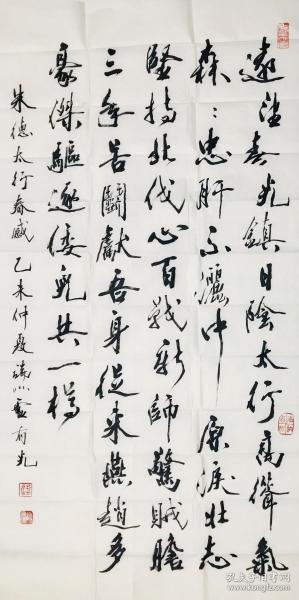 遠望春光鎮日陰太行高聳氣
森〻忠肝不灑中原淚壯志
堅持北伐心百戰新師驚賊膽
三年苦鬭獻吾身從來燕趙多
豪傑驅逐倭兒共一樽
朱德太行春感 乙未仲夏 有光
孔夫子旧书网